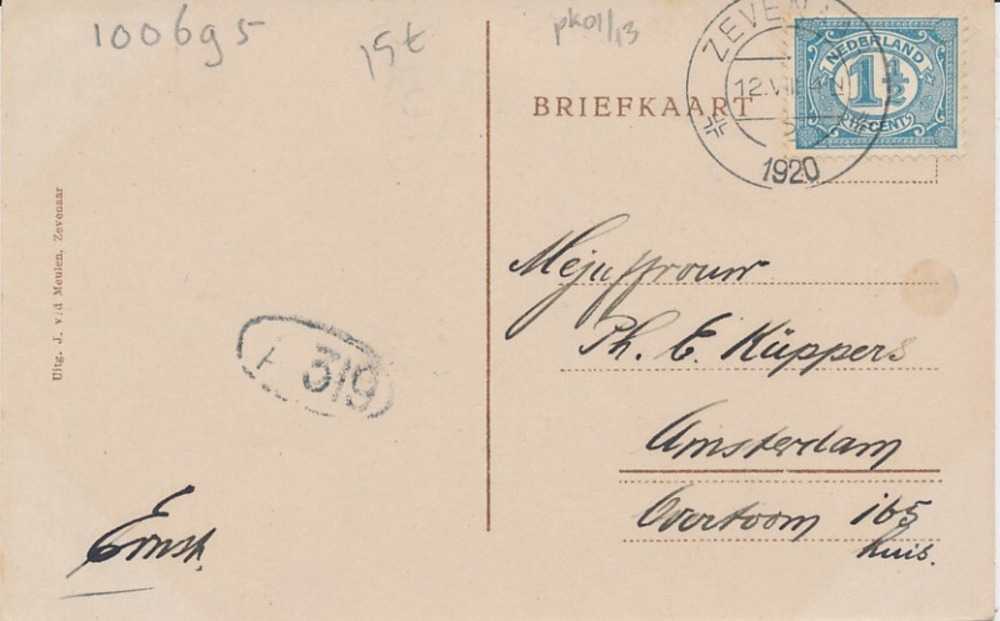 100695
15t
pk01/13
BRIEFKAART
ZEVEN
1920
NEDERLAND
1 1/2
CENT
Uitg. J. v/d Meulen, Zevenaar
319
Mejuffrouw
Ph. E. Küppers
Amsterdam
Overtoom 165
huis.
Ernst.